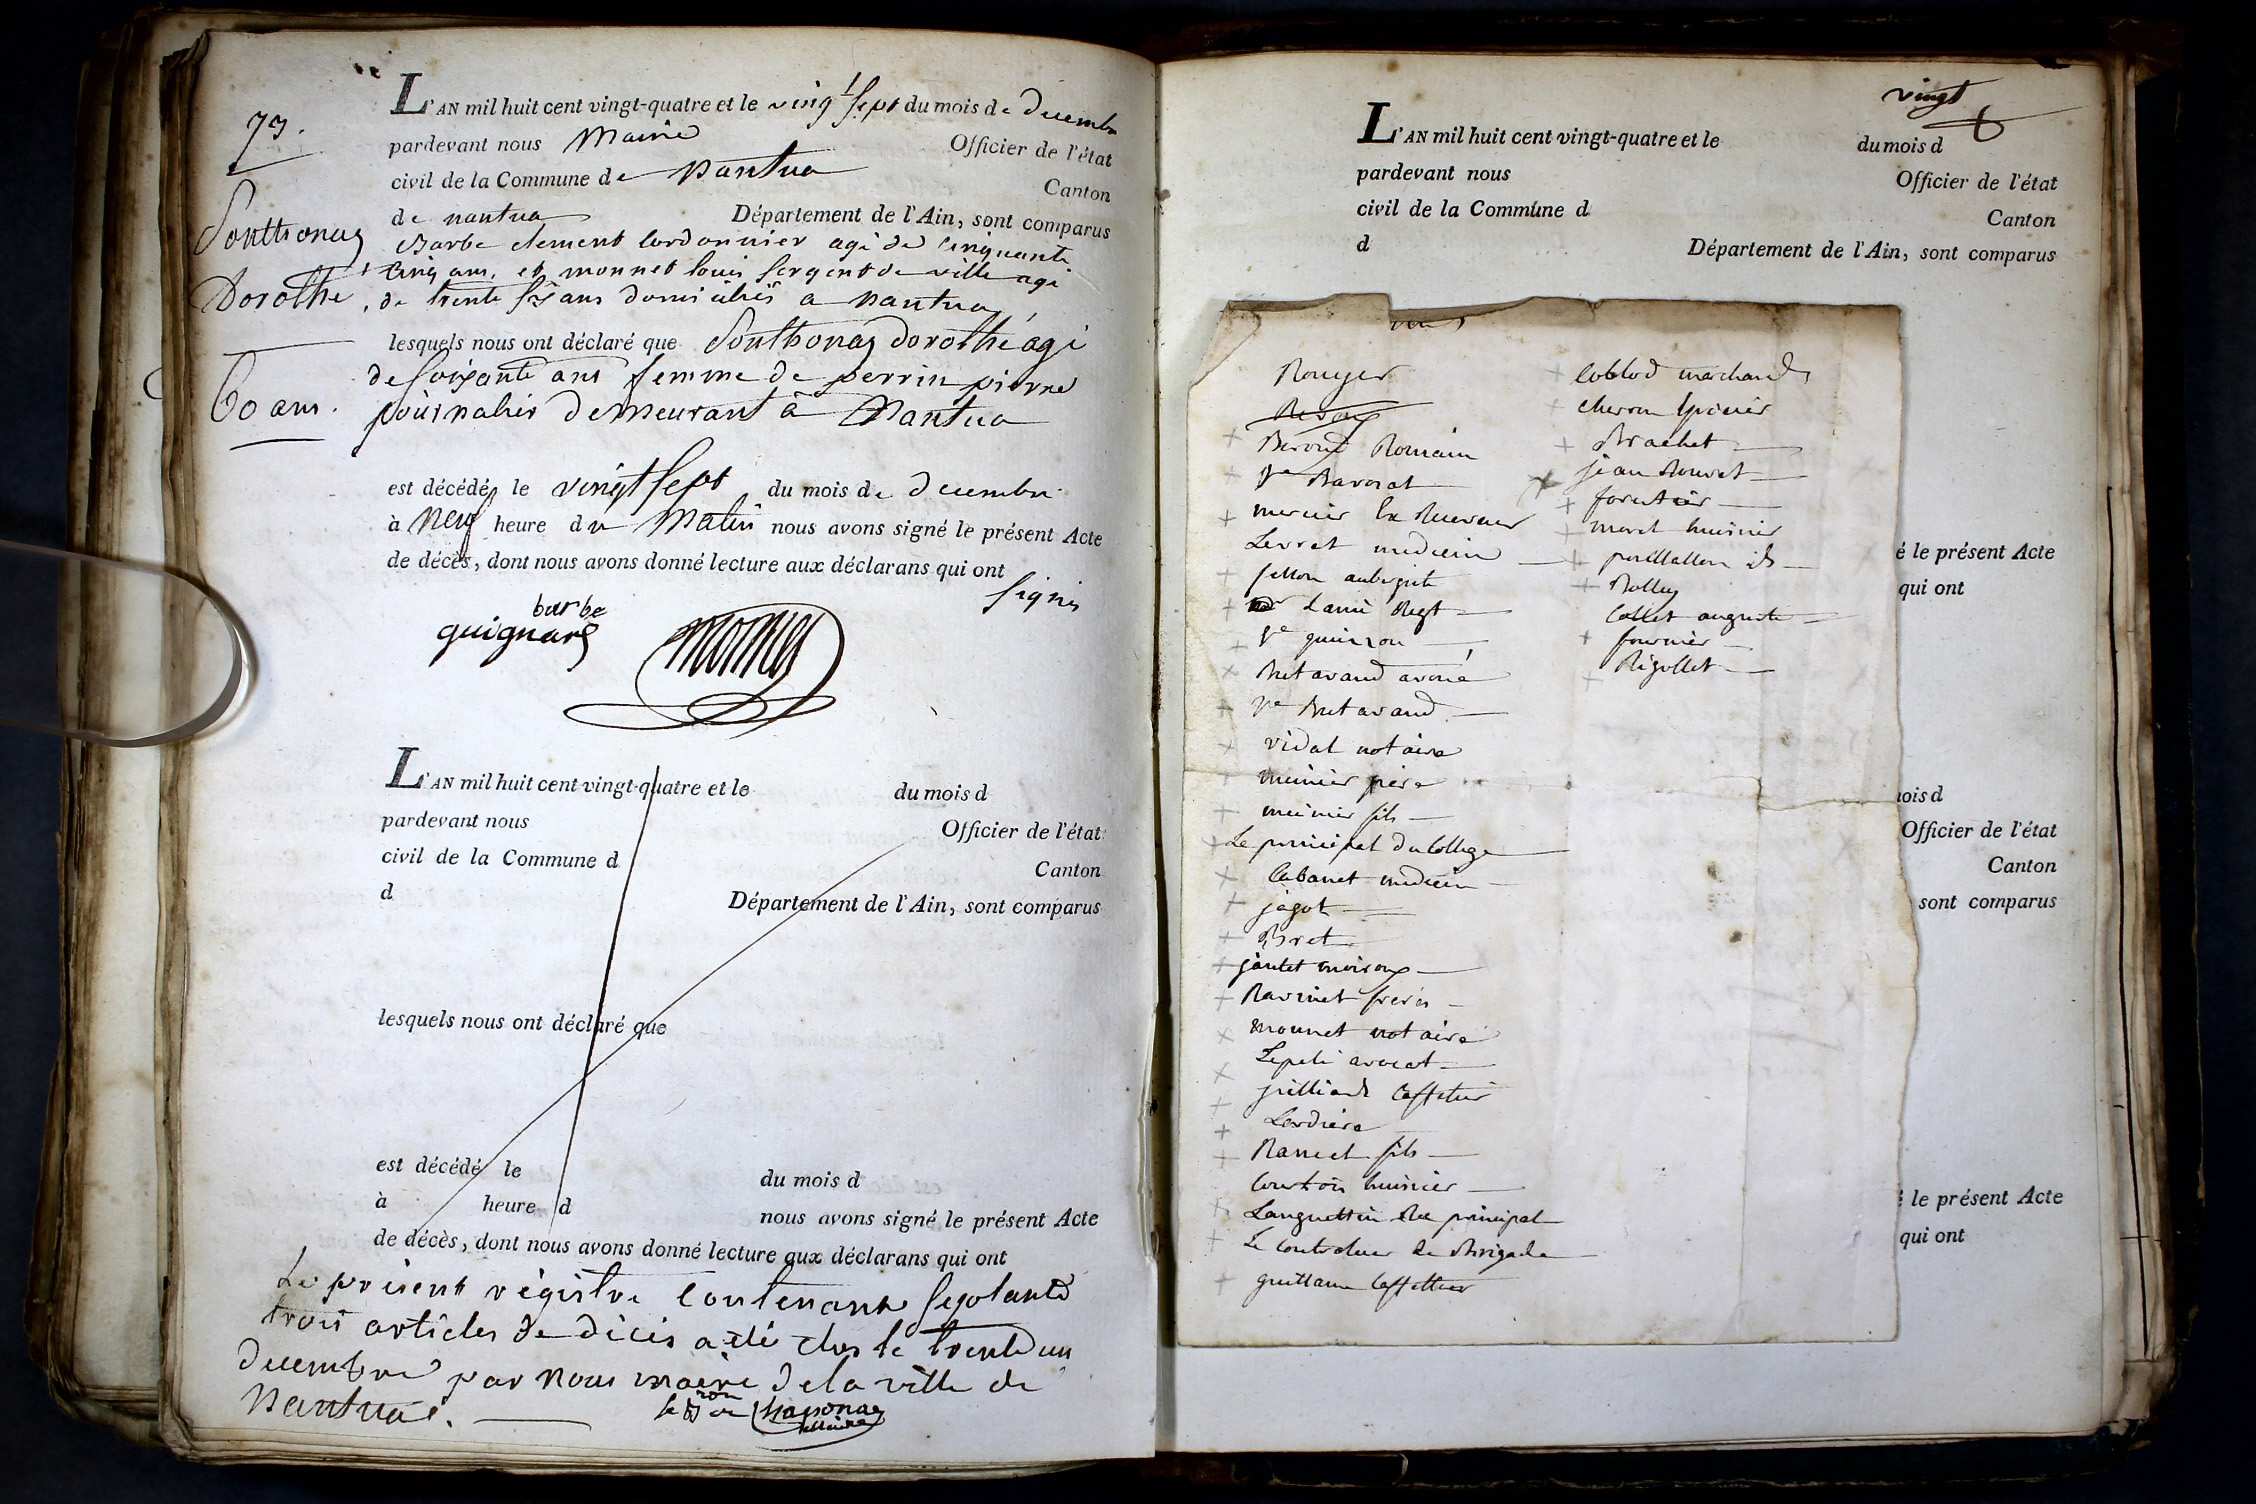 73.
Sonthonax
Dorothé
60 ans.
L'AN mil huit cent vingt-quatre et le vingt sept du mois de decembre
pardevant nous Maire Officier de l'état
civil de la Commune de Nantua Canton
de nantua Département de l'Ain, sont comparus
Barbe clement Cordonnier agé de Cinquante
Cinq ans, et monnet Louis Sergent de ville agé
de trente six ans domiciliés a Nantua,
lesquels nous ont déclaré que Sonthonax dorothé agé
de Soixante ans femme de perrin pierre
journalier demeurant à Nantua
est décédée le vingt sept du mois de decembre
à Neuf heure du Matin nous avons signé le présent Acte
de décès, dont nous avons donné lecture aux déclarans qui ont
signés
barbe
guignard
monnet
L'AN mil huit cent vingt-quatre et le du mois d
pardevant nous Officier de l'état
civil de la Commune d Canton
d Département de l'Ain, sont comparus
lesquels nous ont déclaré que
est décédé le du mois d
à heure d nous avons signé le présent Acte
de décès, dont nous avons donné lecture aux déclarans qui ont
Le présent régistre Contenant Septante
trois articles de décès a été clos le trente un
decembre par nous maire de la ville de
Nantua.
maire
vingt
L'AN mil huit cent vingt-quatre et le du mois d
pardevant nous Officier de l'état
civil de la Commune d Canton
d Département de l'Ain, sont comparus
Rouyer
Beroud Romain
Ve Ravorat
mercier Ex Receveur
Levret medecin
fellon aubergiste
Ve guinzon
Butavand avoué
Ve Butavand
vidal notaire
munier père
munier fils
Le principal du College
Cabanet medecin
jagot
Bret
jantet
Ravinet freres
mounet notaire
avocat
juilliard Caffetier
Lardiere
Ramet fils
Courtois huissier
Languettin principal
Le Controleur de Brigade
guillaume Caffettier
Coblod marchand
cheron Epicier
Brachet
jean
forestier
moret huissier
Rolley
Collet auguste
fournier
Rigollet
é le présent Acte
qui ont
ois d
Officier de l'état
Canton
sont comparus
le présent Acte
qui ont